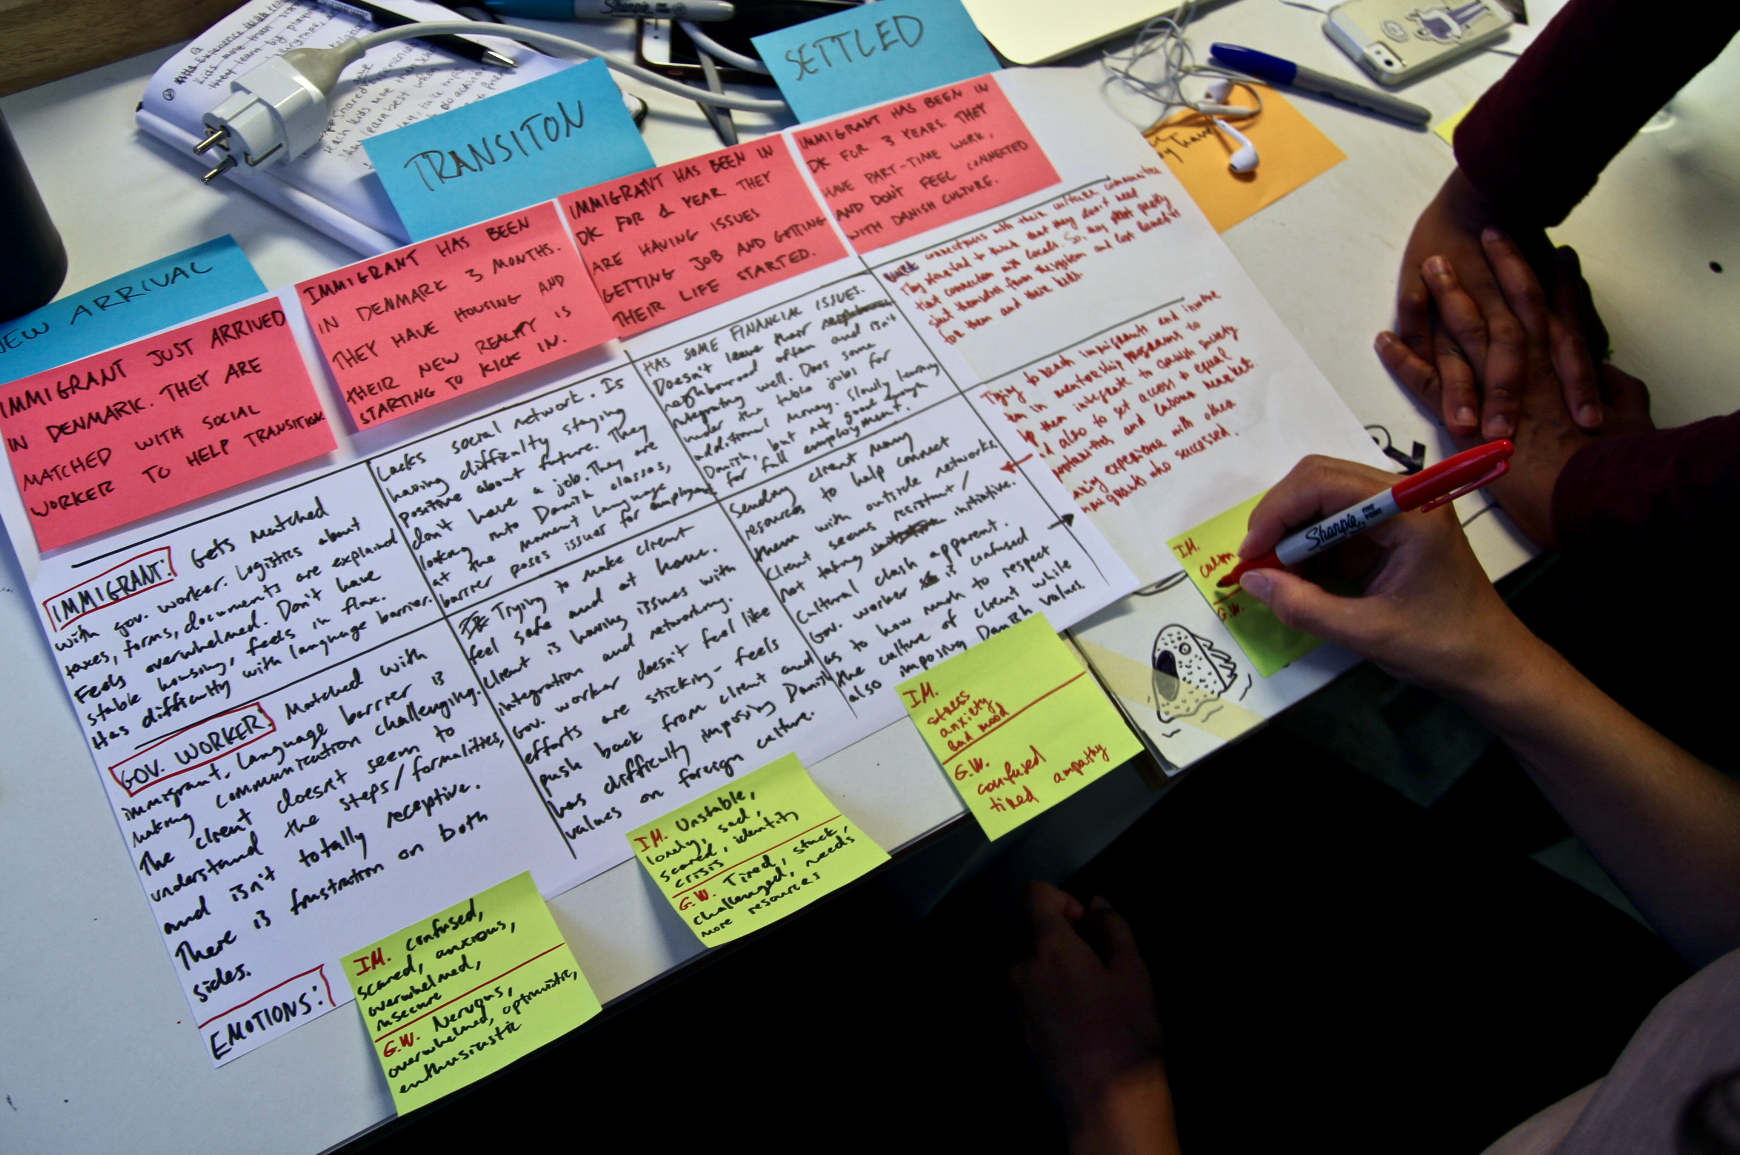 NEW ARRIVAL
TRANSITON
SETTLED
IMMIGRANT JUST ARRIVED
IN DENMARK. THEY ARE
MATCHED WITH SOCIAL
WORKER TO HELP TRANSITION.
IMMIGRANT HAS BEEN
IN DENMARK 3 MONTHS.
THEY HAVE HOUSING AND
THEIR NEW REALITY IS
STARTING TO KICK IN.
IMMIGRANT HAS BEEN IN
DK FOR 1 YEAR THEY
ARE HAVING ISSUES
GETTING JOB AND GETTING
THEIR LIFE STARTED.
IMMIGRANT HAS BEEN IN
DK FOR 3 YEARS. THEY
HAVE PART-TIME WORK,
AND DON'T FEEL CONNECTED
WITH DANISH CULTURE.
IMMIGRANT: Gets matched
with gov. worker. Logistics about
taxes, forms, documents are explained
Feels overwhelmed. Don't have
stable housing, feels in flux.
Has difficulty with language barrier.
Lacks social network. Is
having difficulty staying
positive about future. They
don't have a job. They are
looking into Danish classes,
at the moment language
barrier poses issues for
HAS SOME FINANCIAL ISSUES.
Doesn't leave their
neighbourood often and isn't
integrating well. Does some
under the table jobs for
additional money. Slowly learning
Danish, but not good enough
for full employment.
connections with their
They started to think that they don't need
that connection with locals. So, they
shut themselves from the system and
for them and their
GOV. WORKER: Matched with
immigrant. Language barrier is
making communication challenging.
The client doesn't seem to
understand the steps/formalities,
and isn't totally receptive.
There is frustration on both
sides.
Trying to make client
feel safe and at home.
Client is having issues with
integration and networking.
Gov. worker doesn't feel like
efforts are sticking - feels
push back from client and
has difficulty imposing Danish
values on foreign culture.
Sending client many
resources to help connect
them with outside networks
Client seems resistant/
not taking initiative.
Cultural clash apparent.
Gov. worker is confused
as to how much to respect
the culture of client while
also imposing Danish values.
Trying to teach immigrants and involve
in mentorship programs to
them integrate to danish society
also to get access to equal
and labour market
experience with other
who succeed.
EMOTIONS:
IM. confused,
scared, anxious,
overwhelmed,
insecure
G.W. Nervous,
overwhelmed, optimistic,
enthusiastic
IM. Unstable,
lonely, sad,
scared, identity
crisis
G.W. Tired, stuck,
challenged, needs
more resources
IM.
stress
anxiety
Bad mood
G.W.
confused
tired ampathy
IM.
G.W.
Sharpie